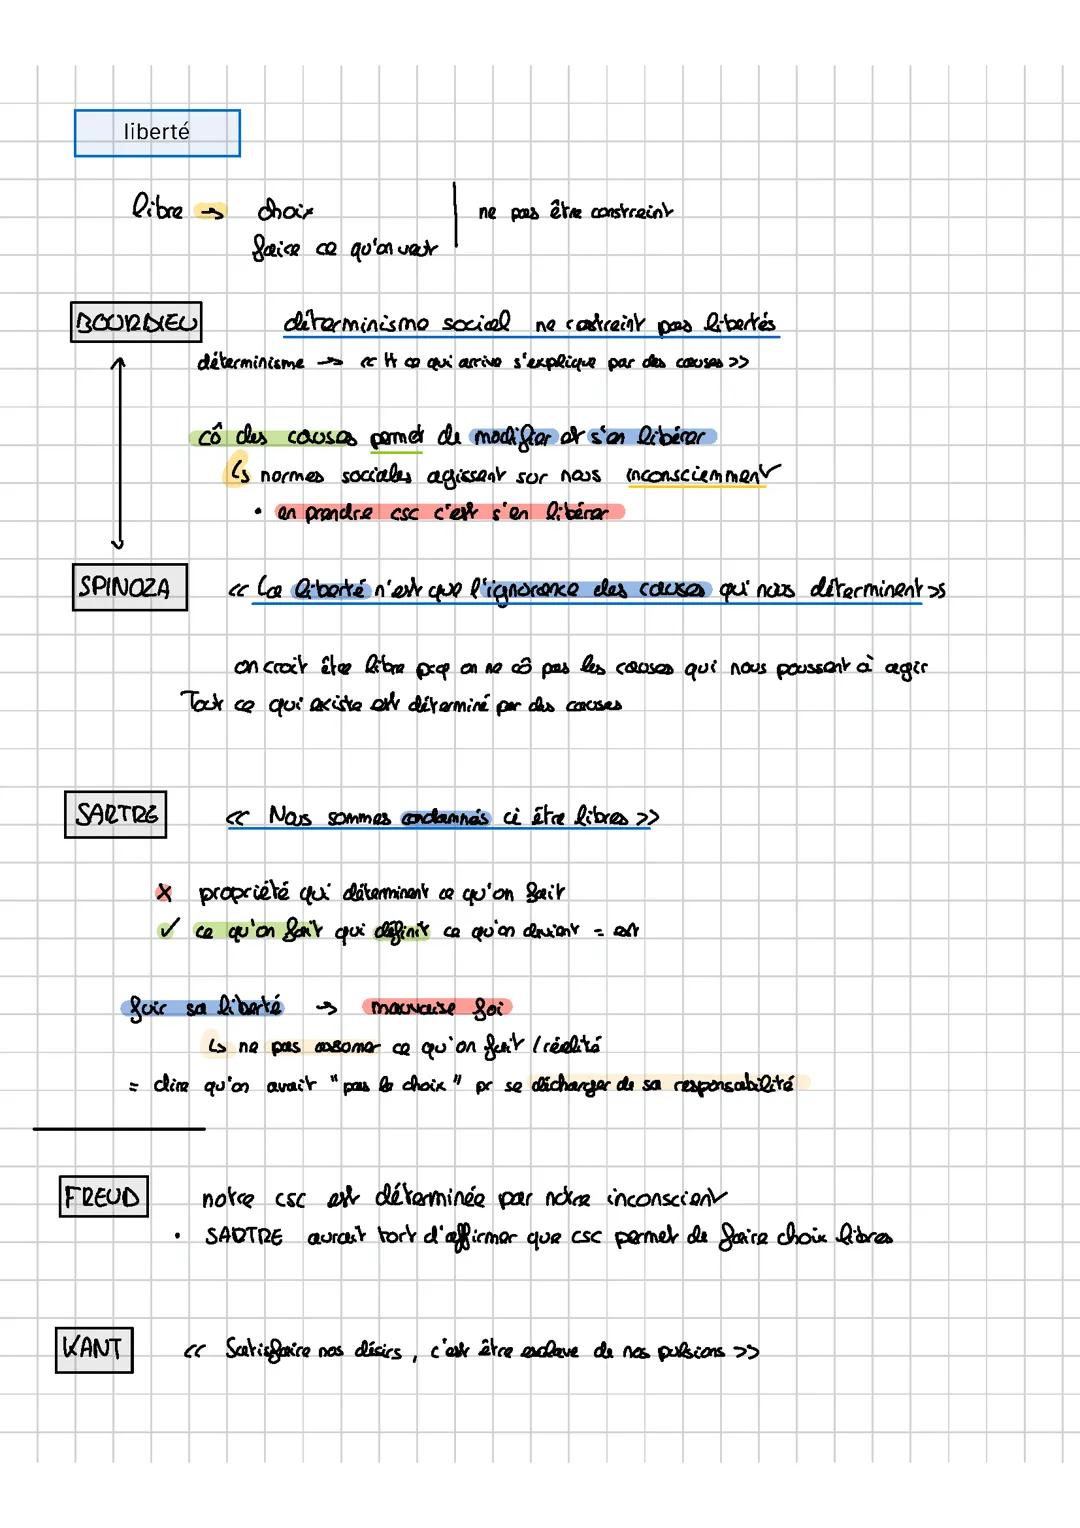 liberté
libre → choix | ne pas être constreint
faire ce qu'on veut
BOURDIEU déterminisme social ne costreint pas libertés
déterminisme → << tt ce qui arrive s'explique par des causes >>
cô des causes permet de modifier et s'en libérer
↳ normes sociales agissent sur nous inconsciemment
• en prendre csc c'est s'en libérer
SPINOZA << La liberté n'est que l'ignorance des causes qui nous déterminent >>
on croit être libre pcq on ne cô pas les causes qui nous poussent à agir
Tout ce qui existe est déterminé par des causes
SARTRE << Nous sommes condamnés à être libres >>
x propriété qui déterminent ce qu'on fait
✓ ce qu'on fait qui définit ce qu'on devient = est
fuir sa liberté → mauvaise foi
↳ ne pas assumer ce qu'on fait / réalité
= dire qu'on avait "pas le choix" pr se décharger de sa responsabilité
FREUD notre csc est déterminée par notre inconscient
• SARTRE aurait tort d'affirmer que csc permet de faire choix libres
KANT << Satisfaire nos désirs, c'est être esclave de nos pulsions >>